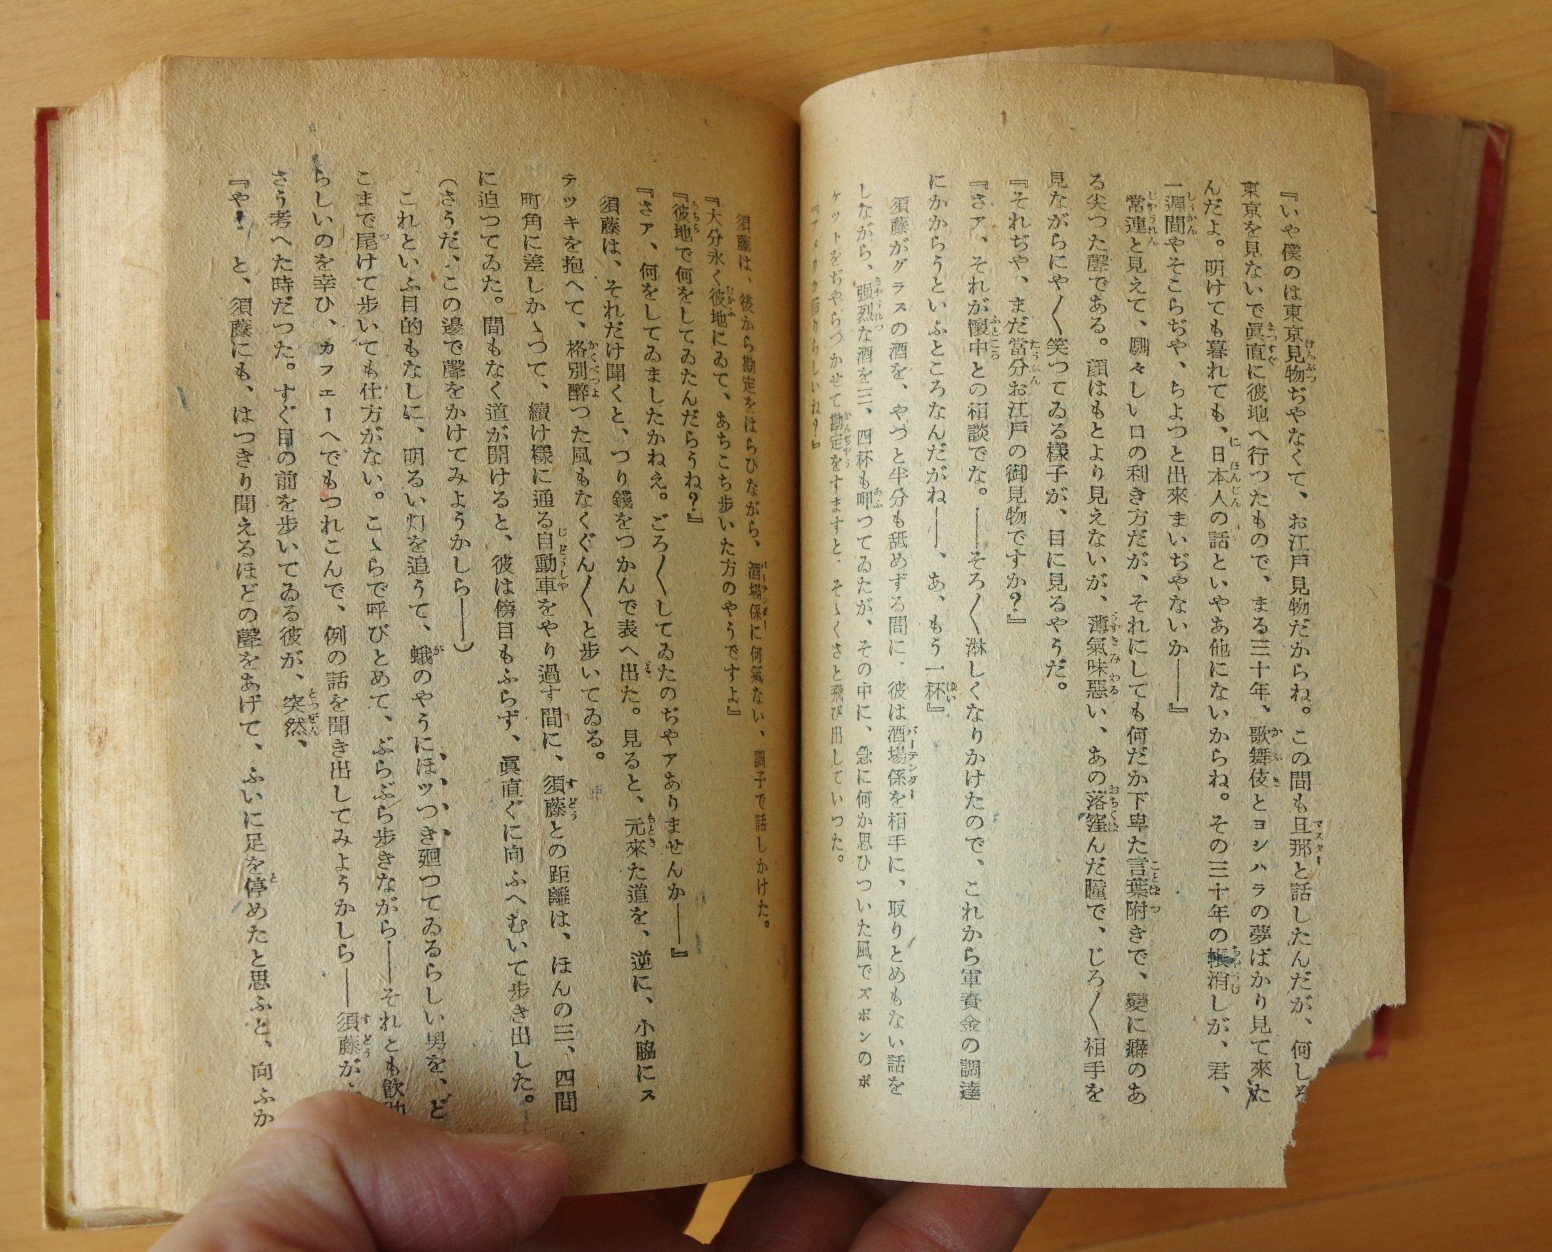 『いや僕のは東京見物ぢやなくて、お江戸見物だからね。この間も旦那と話したんだが、何しろ
東京を見ないで眞直に彼地へ行つたもので、まる三十年、歌舞伎とヨシハラの夢ばかり見て來た
んだよ。明けても暮れても、日本人の話といやあ他にないからね。その三十年の 消しが、君、
一週間やそこらぢや、ちよつと出來まいぢやないか――』
常連と見えて、馴々しい口の利き方だが、それにしても何だか下卑た言葉附きで、變に癖のあ
る尖つた聲である。顔はもとより見えないが、薄氣味惡い、あの落窪んだ瞳で、じろ〱相手を
見ながらにや〱笑つてゐる樣子が、目に見るやうだ。
『それぢや、まだ當分お江戸の御見物ですか？』
『さア、それが懷中との相談でな。――そろ〱淋しくなりかけたので、これから軍資金の調達
にかからうといふところなんだがね――、あ、もう一杯』
須藤がグラスの酒を、やつと半分も舐めずる間に、彼は酒場係を相手に、取りとめもない話を
しながら、强烈な酒を三、四杯も呷つてゐたが、その中に、急に何か思ひついた風でズボンのポ
ケツトをぢやらつかせて勘定をすますと、そゝくさと飛び出していつた。
『アメリカ歸りらしいね？』
須藤は、後から勘定をはらひながら、酒場係に何氣ない、調子で話しかけた。
『大分永く彼地にゐて、あちこち歩いた方のやうですよ』
『彼地で何をしてゐたんだらうね？』
『さア、何をしてゐましたかねえ。ごろ〱してゐたのぢやアありませんか――』
須藤は、それだけ聞くと、つり錢をつかんで表へ出た。見ると、元來た道を、逆に、小脇にス
テツキを抱へて、格別醉つた風もなくぐん〱と歩いてゐる。
町角に差しかゝつて、續け樣に通る自動車をやり過す間に、須藤との距離は、ほんの三、四間
に迫つてゐた。間もなく道が開けると、彼は傍目もふらず、眞直ぐに向ふへむいて歩き出した。
（さうだ、この邊で聲をかけてみようかしら――）
これといふ目的もなしに、明るい灯を追うて、蛾のやうにほツつき廻つてゐるらしい男を、ど
こまで尾けて歩いても仕方がない。こゝらで呼びとめて、ぶらぶら歩きながら――それとも飮助
らしいのを幸ひ、カフエーへでもつれこんで、例の話を聞き出してみようかしら――須藤が、
さう考へた時だつた。すぐ目の前を歩いてゐる彼が、突然、
『や！　と、須藤にも、はつきり聞えるほどの聲をあげて、ふいに足を停めたと思ふと、向ふか